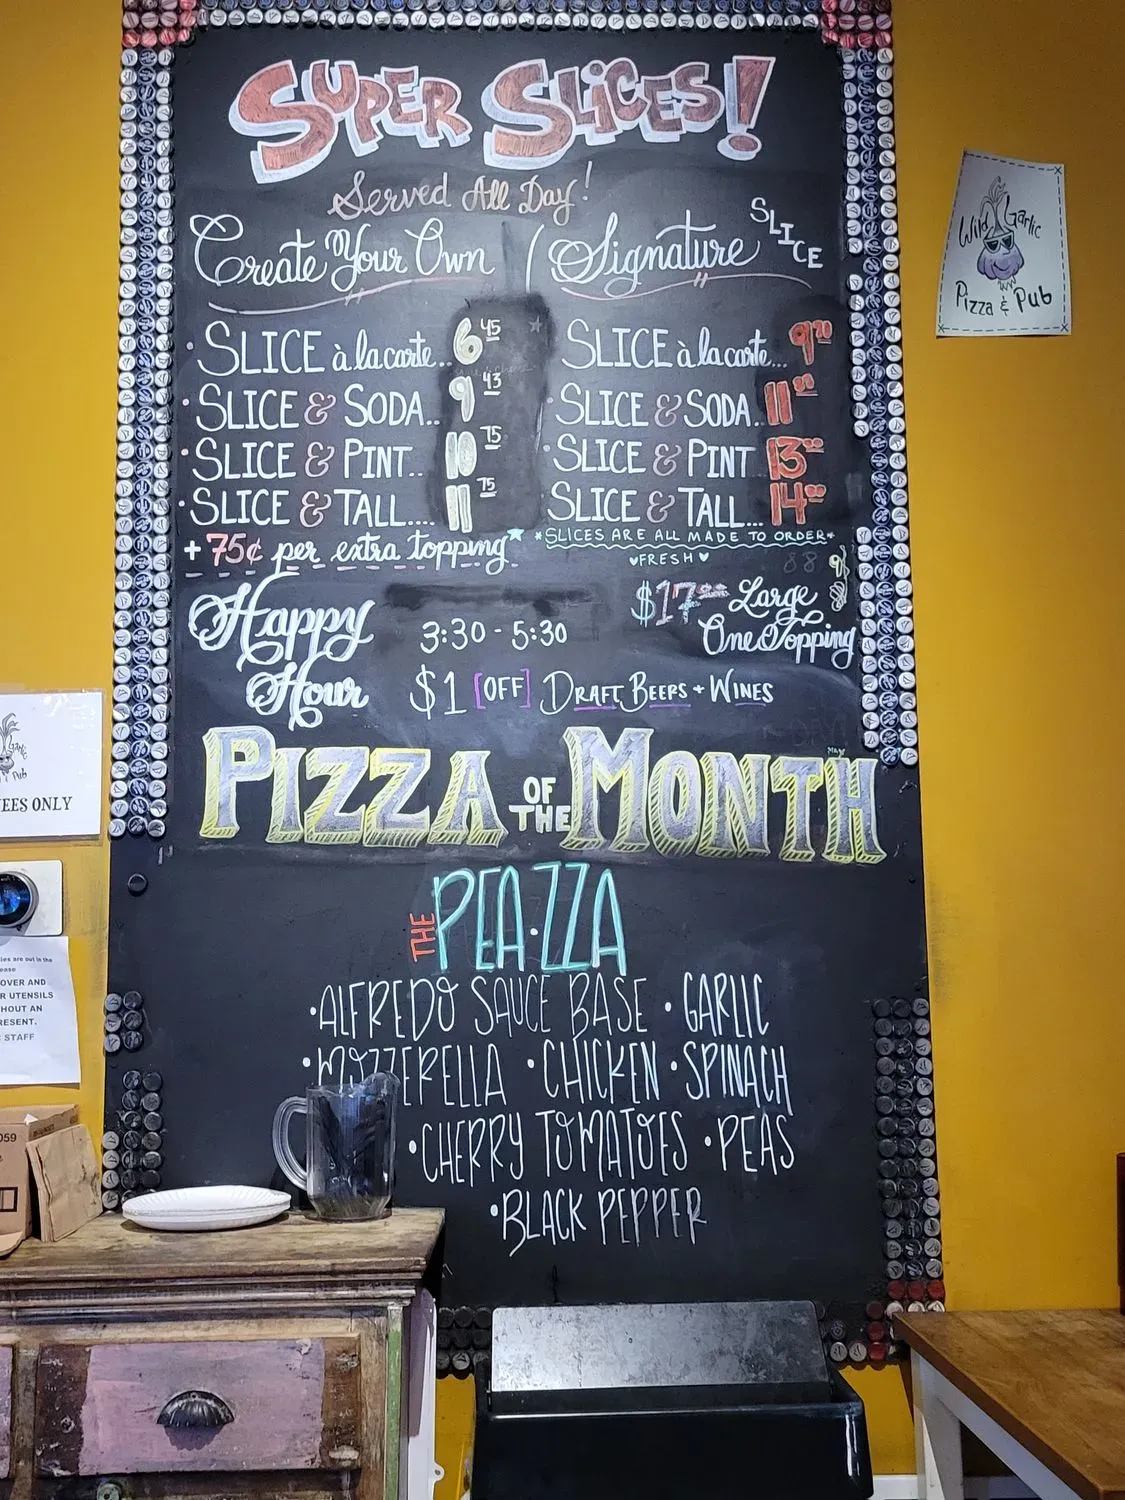 SUPER SLICES!
Served All Day!
Create Your Own
SLICE à la carte.. 6 45
SLICE & SODA.. 9 43
SLICE & PINT.. 10 75
SLICE & TALL.... 11 75
+ 75¢ per extra topping
Signature SLICE
SLICE à la carte...
SLICE & SODA..
SLICE & PINT 13
SLICE & TALL... 14
*SLICES ARE ALL MADE TO ORDER*
♥FRESH♥
Happy Hour
3:30 - 5:30
$1 [OFF] DRAFT BEERS + WINES
$17 Large
One Topping
PIZZA OF THE MONTH
THE PEA·ZZA
·ALFREDO SAUCE BASE ·GARLIC
·MOZZERELLA ·CHICKEN ·SPINACH
·CHERRY TOMATOES ·PEAS
·BLACK PEPPER
Wild Garlic
Pizza & Pub
Pub
EES ONLY
ies are out in the
ease
OVER AND
R UTENSILS
HOUT AN
RESENT.
STAFF
059